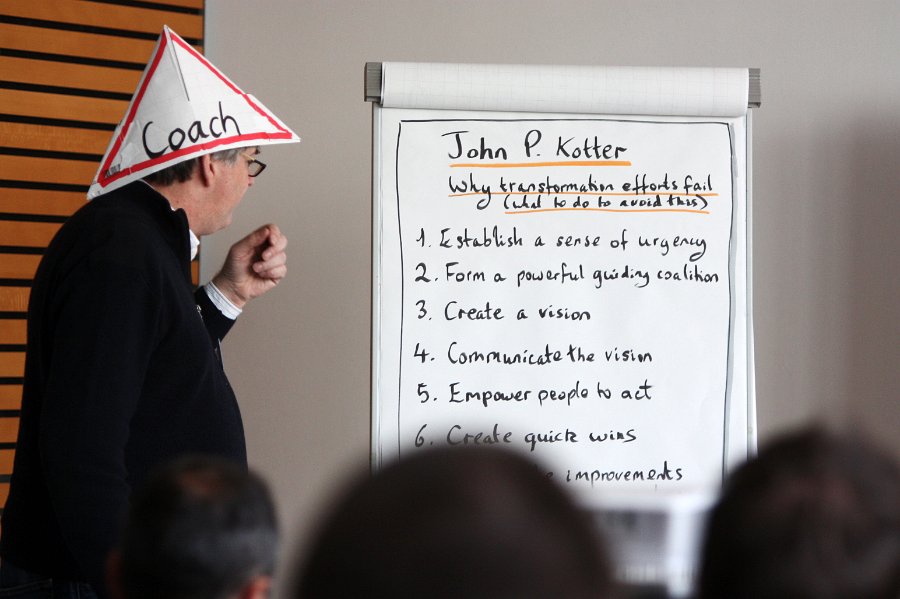 Coach
John P. Kotter
Why transformation efforts fail
(what to do to avoid this)
1. Establish a sense of urgency
2. Form a powerful guiding coalition
3. Create a vision
4. Communicate the vision
5. Empower people to act
6. Create quick wins
improvements